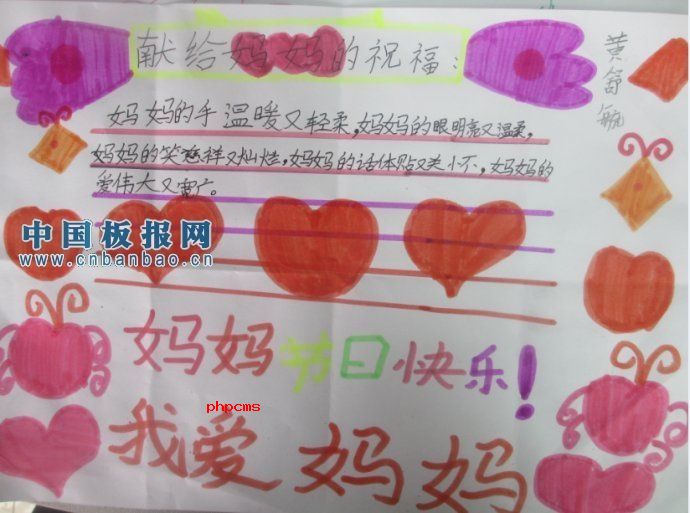 献给妈妈的祝福：
黄舒
妈妈的手温暖又轻柔，妈妈的眼明亮又温柔，
妈妈的笑慈祥又灿烂，妈妈的话体贴又小不，妈妈的
爱伟大又广。
中国板报网
www.cnbanbao.cn
妈妈节日快乐！
phpcms
我爱妈妈